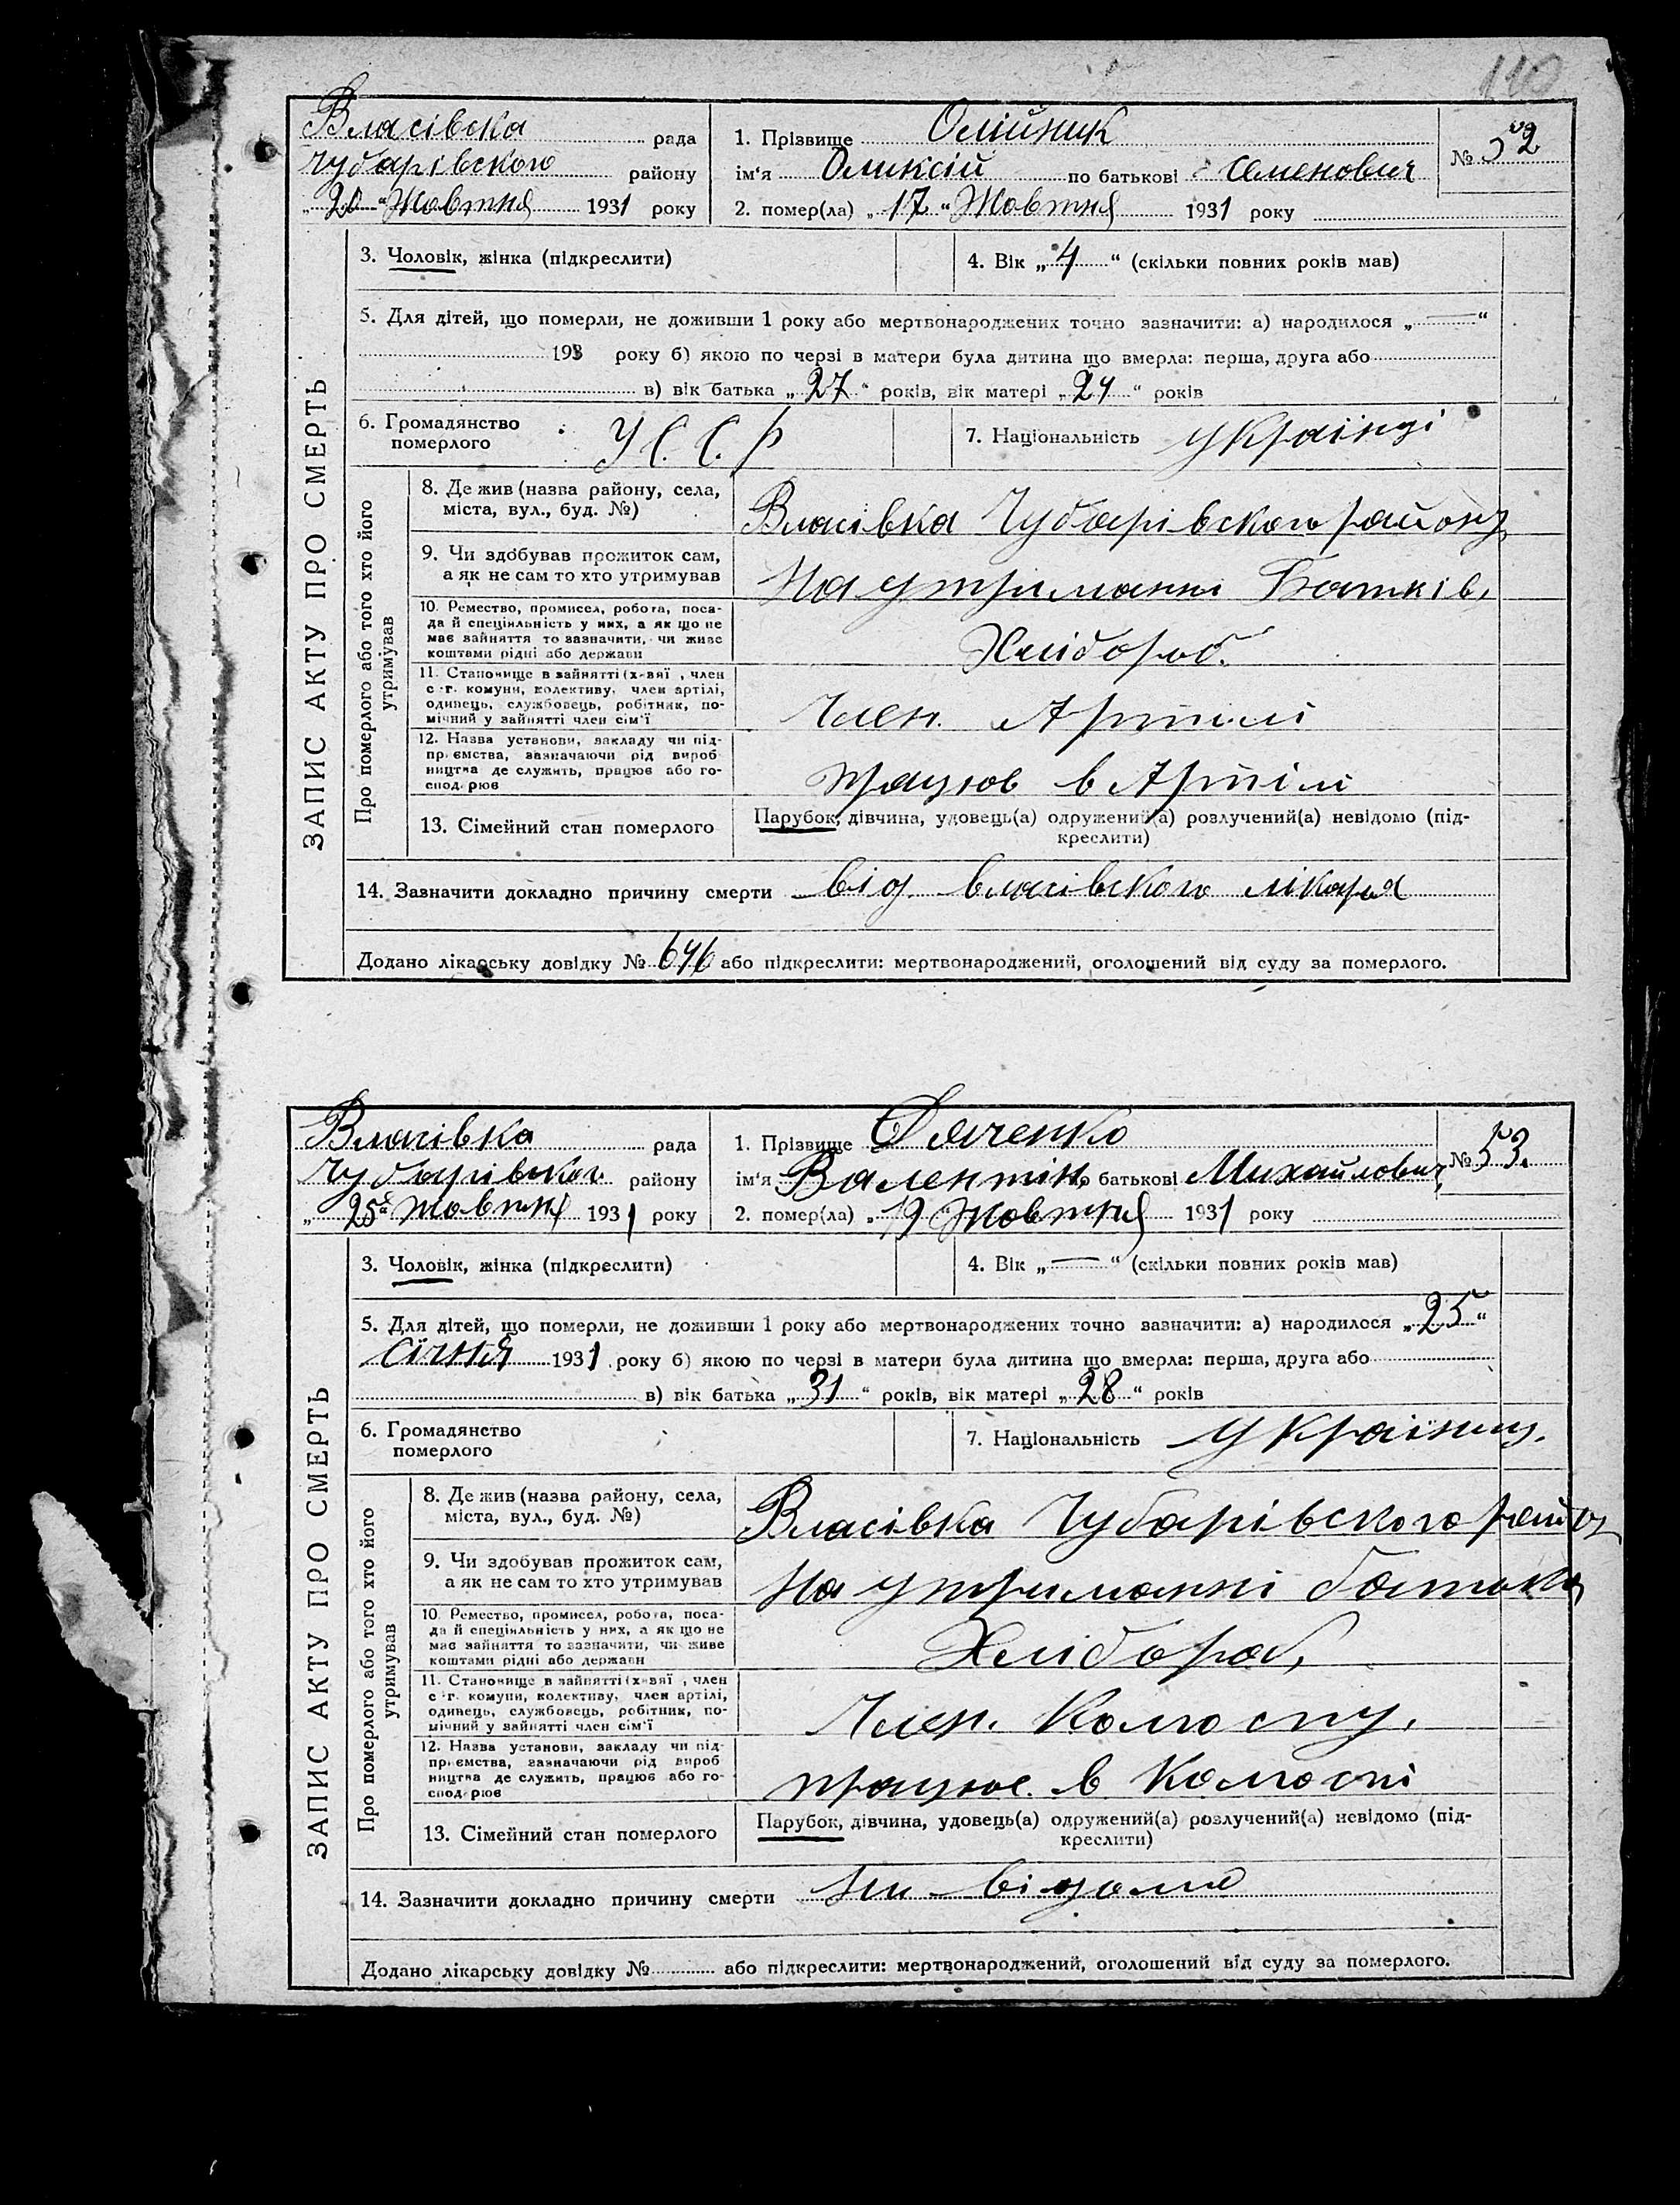 110
Власівска рада
Чубарівского району
„ 20 “ Жовтня 1931 року
1. Прізвище Олійник
ім‘я Оликсій по батькові Семенович
2. помер(ла) „ 17 “ Жовтня 1931 року
№ 52
ЗАПИС АКТУ ПРО СМЕРТЬ
3. Чоловік, жінка (підкреслити)
4. Вік „ 4 “ (скільки повних років мав)
5. Для дітей, що померли, не доживши 1 року або мертвонароджених точно зазначити: а) народилося „ — “
193 року б) якою по черзі в матери була дитина що вмерла: перша, друга або
в) вік батька „ 27 “ років, вік матері „ 24 “ років
6. Громадянство
померлого
У С. С. Р
7. Національність україньці
Про померлого або того хто його
утримував
8. Де жив (назва району, села,
міста, вул., буд. №)
Власівка Чубарівского району
9. Чи здобував прожиток сам,
а як не сам то хто утримував
На утриманні Батьків,
10. Ремество, промисел, робота, поса-
да й спеціяльність у них, а як що не
має зайняття то зазначити, чи живе
коштами рідні або держави
Хлібороб.
11. Становище в зайнятті (х-вяї , член
с.-г. комуни, колективу, член артілі,
одинець, службовець, робітник, по-
мічний у зайнятті член сім‘ї
Член. Артілі
12. Назва установи, закладу чи під-
приємства, зазначаючи рід вироб
ництва де служить, працює або го-
сподарює
працює в Артілі
13. Сімейний стан померлого
Парубок, дівчина, удовець(а) одружений(а) розлучений(а) невідомо (під-
креслити)
14. Зазначити докладно причину смерти від власівского лікаря
Додано лікарську довідку № 646 або підкреслити: мертвонароджений, оголошений від суду за померлого.
Власівка рада
Чубарівског району
„ 25 “ Жовтня 1931 року
1. Прізвище Дяченко
ім‘я Валентін по батькові Михайлович
2. помер(ла) „ 19 Жовтня 1931 року
№ 53.
ЗАПИС АКТУ ПРО СМЕРТЬ
3. Чоловік, жінка (підкреслити)
4. Вік „ — “ (скільки повних років мав)
5. Для дітей, що померли, не доживши 1 року або мертвонароджених точно зазначити: а) народилося „ 25 “
Січня 1931 року б) якою по черзі в матери була дитина що вмерла: перша, друга або
в) вік батька „ 31 “ років, вік матері „ 28 “ років
6. Громадянство
померлого
7. Національність Українц.
Про померлого або того хто його
утримував
8. Де жив (назва району, села,
міста, вул., буд. №)
Власівка Чубарівского району
9. Чи здобував прожиток сам,
а як не сам то хто утримував
На утриманні батька
10. Ремество, промисел, робота, поса-
да й спеціяльність у них, а як що не
має зайняття то зазначити, чи живе
коштами рідні або держави
Хлібороб,
11. Становище в зайнятті (х-вяї , член
с.-г. комуни, колективу, член артілі,
одинець, службовець, робітник, по-
мічний у зайнятті член сім‘ї
Член. Колгоспу.
12. Назва установи, закладу чи під-
приємства, зазначаючи рід вироб
ництва де служить, працює або го-
сподарює
працює. в Колгоспі
13. Сімейний стан померлого
Парубок, дівчина, удовець(а) одружений(а) розлучений(а) невідомо (під-
креслити)
14. Зазначити докладно причину смерти Ни відомо
Додано лікарську довідку № або підкреслити: мертвонароджений, оголошений від суду за померлого.